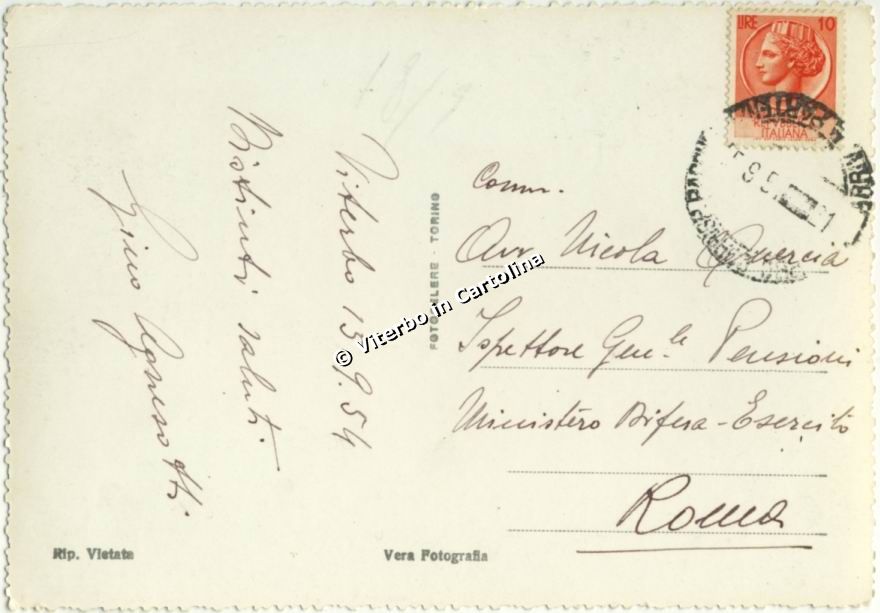 Viterbo 15.9.54
Distinti saluti.
Gino
Comm.
Avv Nicola Quercia
Ispettore Gen.le Pensioni
Ministero Difesa-Esercito
Roma
LIRE 10
REPUBBLICA
ITALIANA
TORINO
© Viterbo in Cartolina
Rip. Vietata
Vera Fotografia